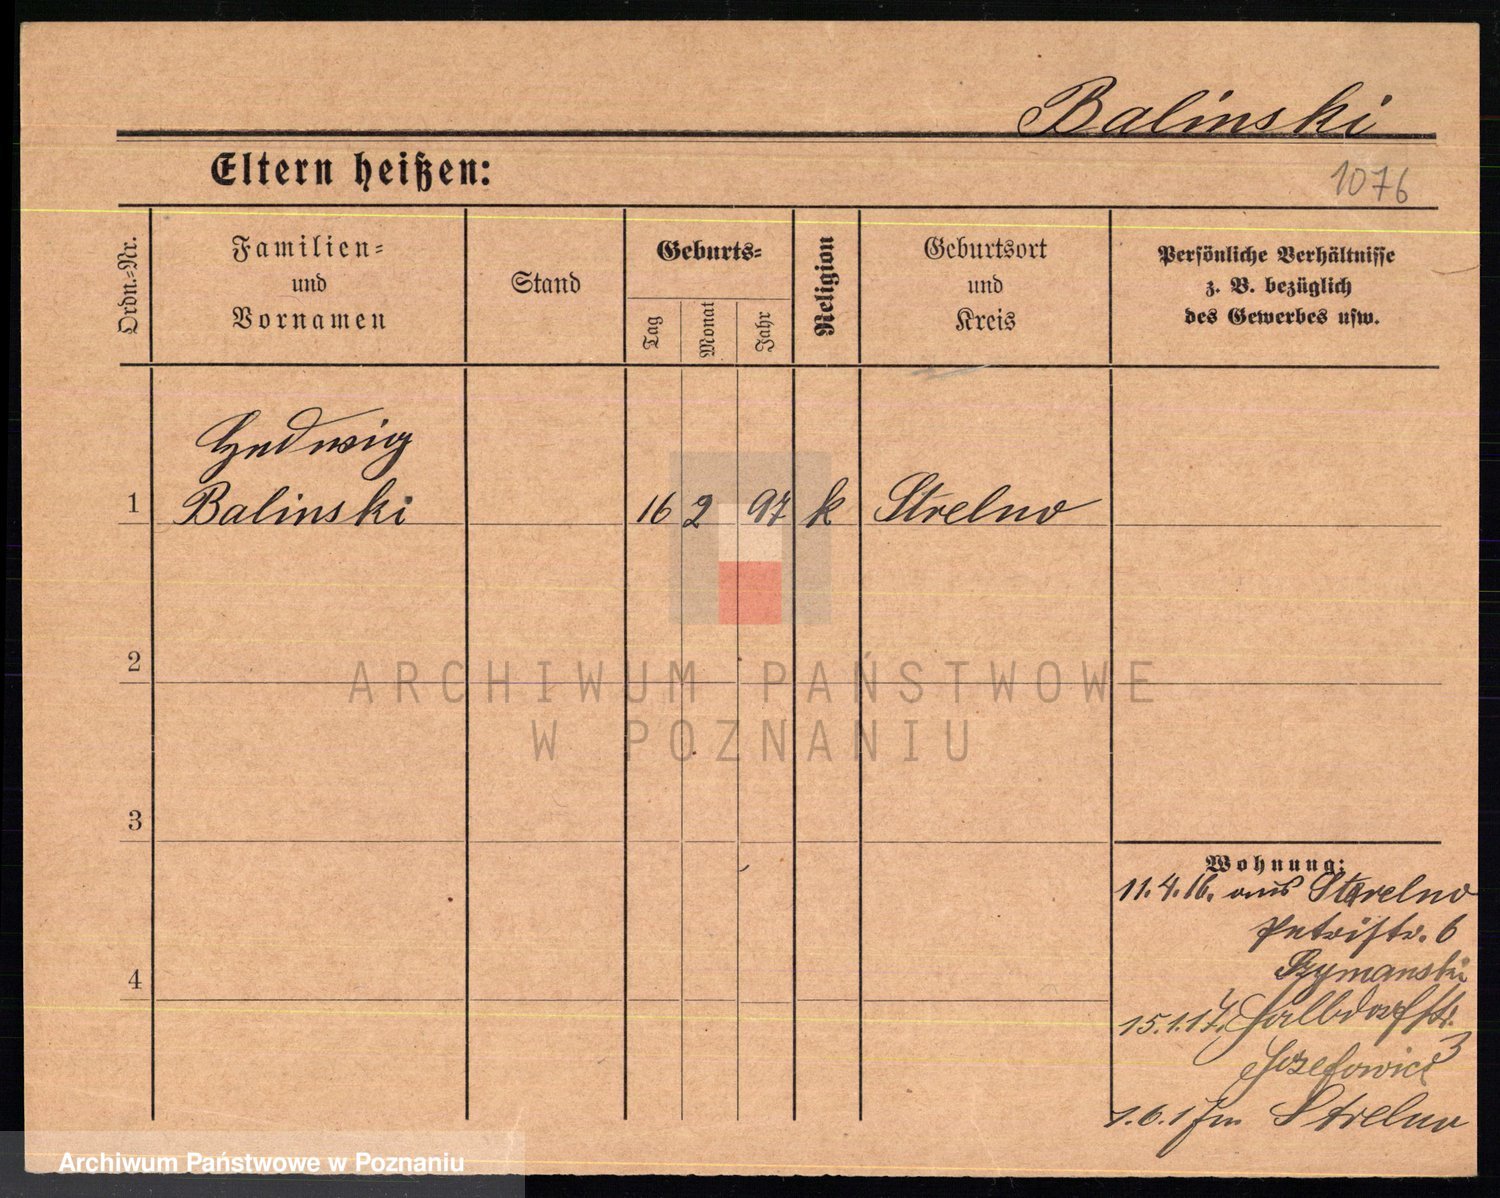 Balinski
Eltern heißen:
1076
Ordn.-Nr.
Familien-
und
Vornamen
Stand
Geburts-
Tag
Monat
Jahr
Religion
Geburtsort
und
Kreis
Persönliche Verhältnisse
z. B. bezüglich
des Gewerbes usw.
Hedwig
1 Balinski 16 2 97 k Strelno
2
ARCHIWUM PAŃSTWOWE
W POZNANIU
3
Wohnung:
11.4.16. aus Strelno
Petristr. 6
Szymanski
4
15.1.17. Halbdorfstr.
3
Jozefowicz
1.6.17 n Strelno
Archiwum Państwowe w Poznaniu